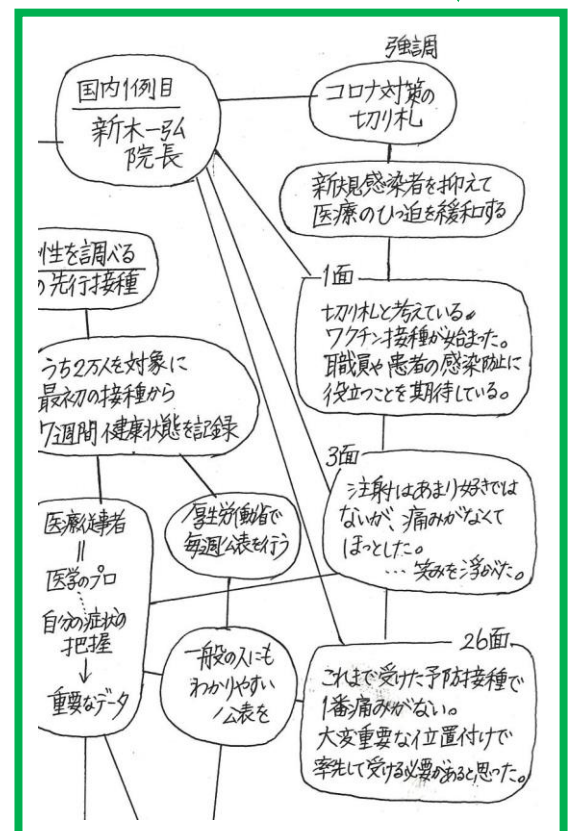 強調
国内1例目
新木一弘
院長
コロナ対策の
切り札
新規感染者を抑えて
医療のひっ迫を緩和する
性を調べる
の先行接種
1面
切り札と考えている。
ワクチン接種が始まった。
職員や患者の感染防止に
役立つことを期待している。
うち2万人を対象に
最初の接種から
7週間健康状態を記録
3面
注射はあまり好きでは
ないが、痛みがなくて
ほっとした。
…笑みを浮かべた。
医療従事者
||
医学のプロ
自分の症状の
把握
↓
重要なデータ
厚生労働省で
毎週公表を行う
一般の人にも
わかりやすい
公表を
26面
これまで受けた予防接種で
1番痛みがない。
大変重要な位置付けで
率先して受ける必要があると思った。